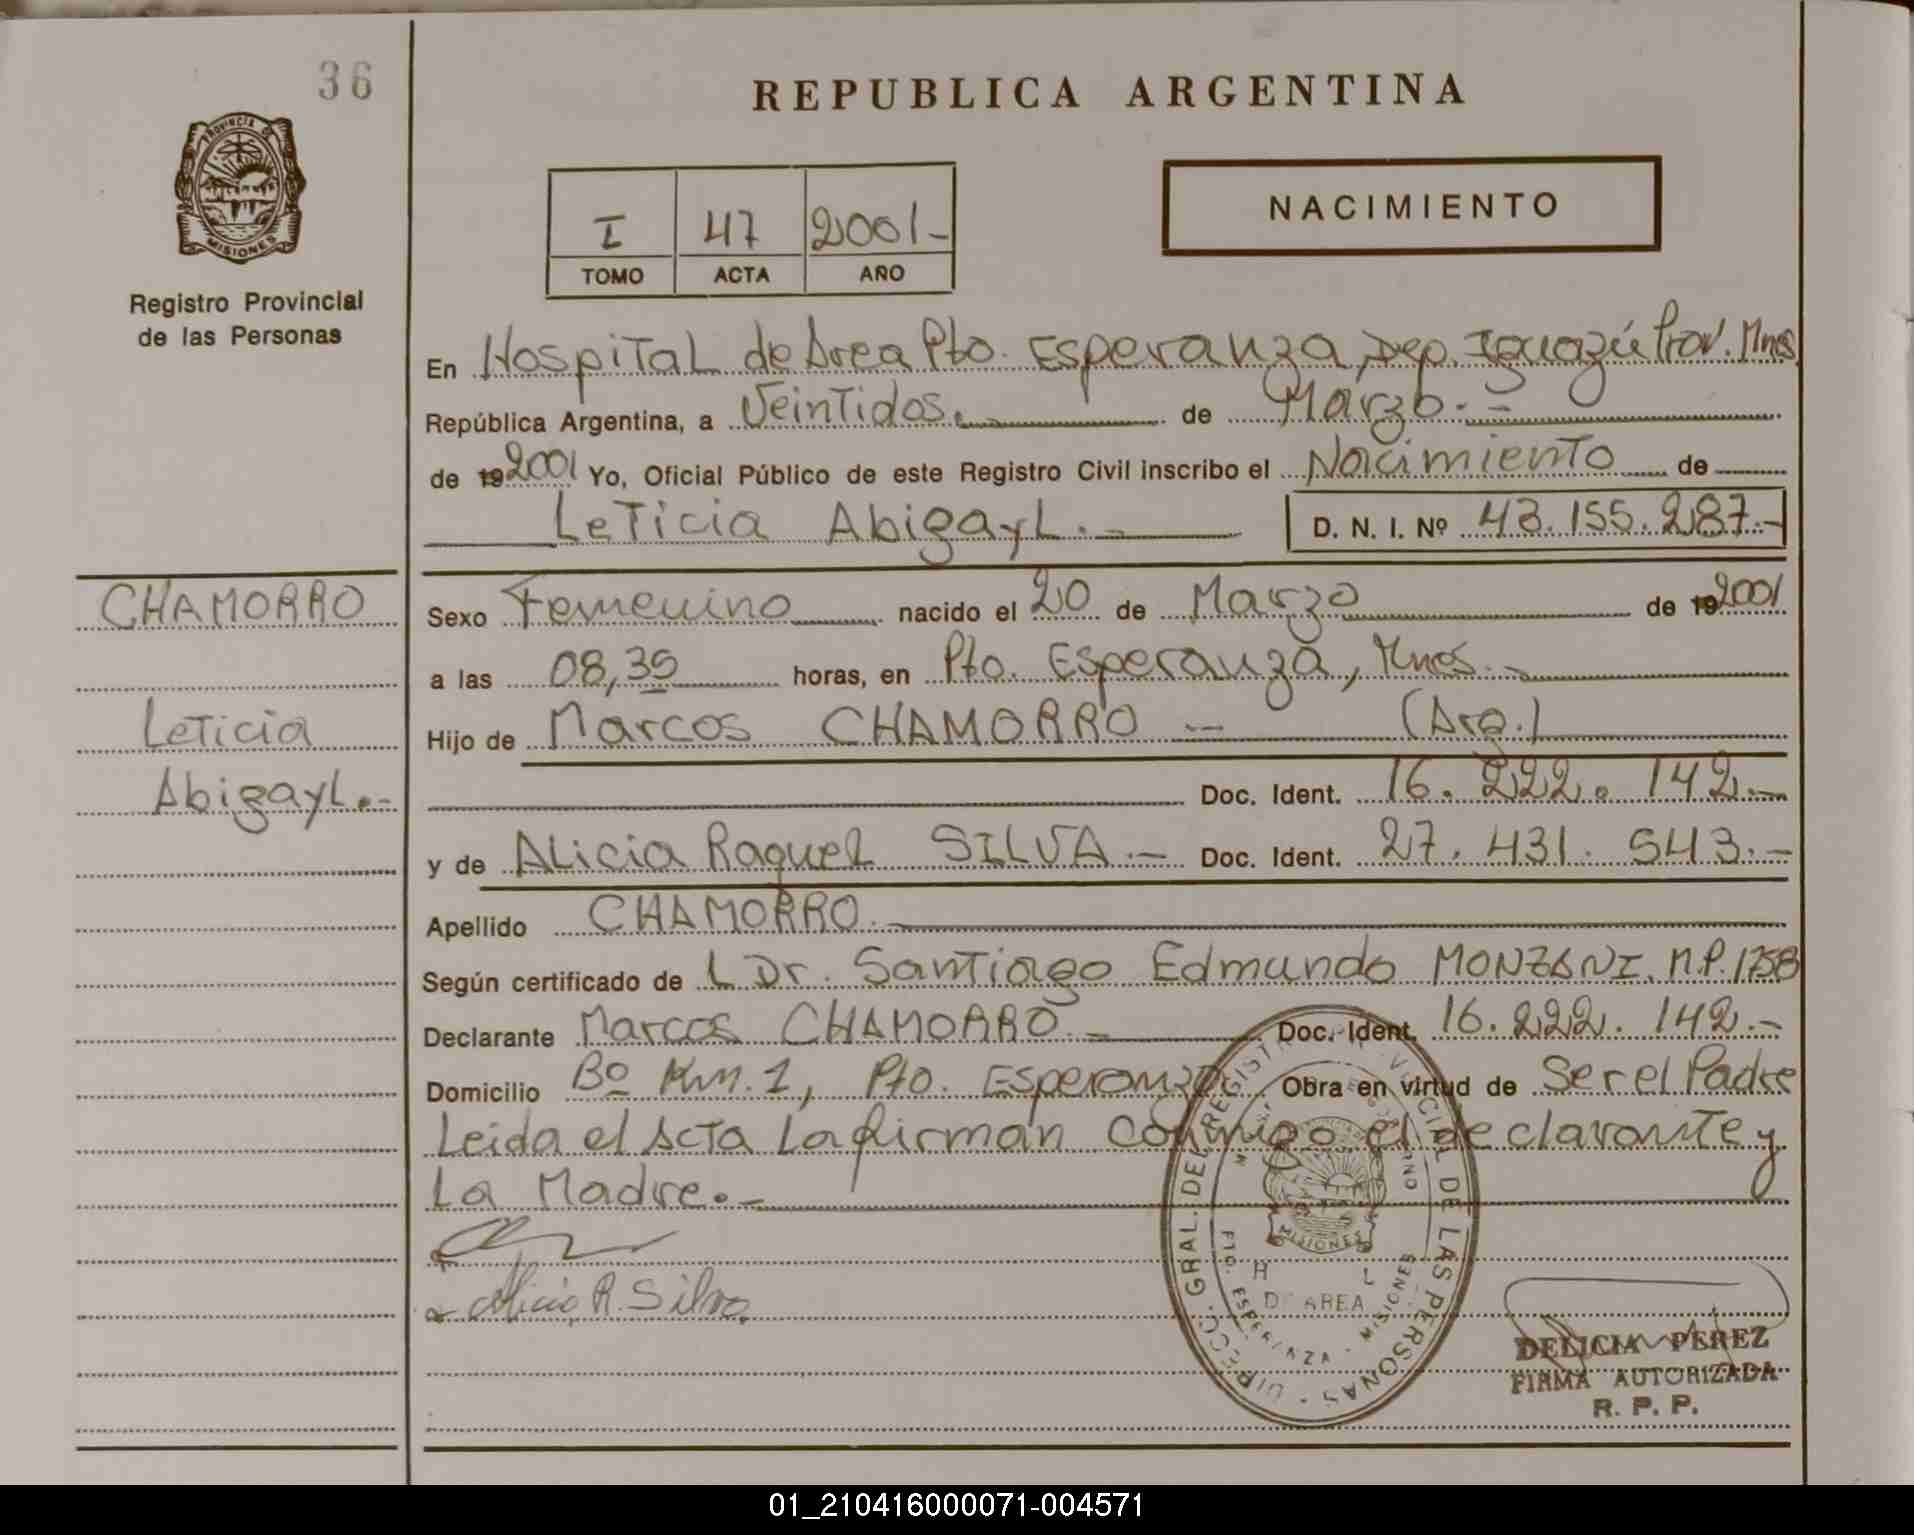 36
REPUBLICA ARGENTINA
PROVINCIA DE
MISIONES
Registro Provincial
de las Personas
I 47 2001-
TOMO ACTA AÑO
NACIMIENTO
En Hospital de Area Pto. Esperanza, Dep. Iguazú Prov. Mnes.
República Argentina, a Veintidos. de Marzo.-
de 19 2001 Yo, Oficial Público de este Registro Civil inscribo el Nacimiento de
Leticia Abigayl.-
D. N. I. Nº 43.155.287.-
CHAMORRO
Leticia
Abigayl.-
Sexo Femenino nacido el 20 de Marzo de 19 2001
a las 08,35 horas, en Pto. Esperanza, Mnes.-
Hijo de Marcos CHAMORRO - (Arg.)
Doc. Ident. 16. 222. 142.-
y de Alicia Raquel SILVA.- Doc. Ident. 27. 431. 543.-
Apellido CHAMORRO.
Según certificado de L Dr. Santiago Edmundo MONZANI. M.P. 1758
Declarante Marcos CHAMORRO.- Doc. Ident. 16. 222. 142.-
Domicilio Bº Km. 1, Pto. Esperanza Obra en virtud de Ser el Padre
Leida el Acta La firman Conmigo el declarante y
La Madre.-
Alicia R. Silva.
DIRECC. GRAL. DEL REGISTRO PROVINCIAL DE LAS PERSONAS
MISIONES
DE AREA
PTO. ESPERANZA - MISIONES
DELICIA PEREZ
FIRMA AUTORIZADA
R. P. P.
01_210416000071-004571